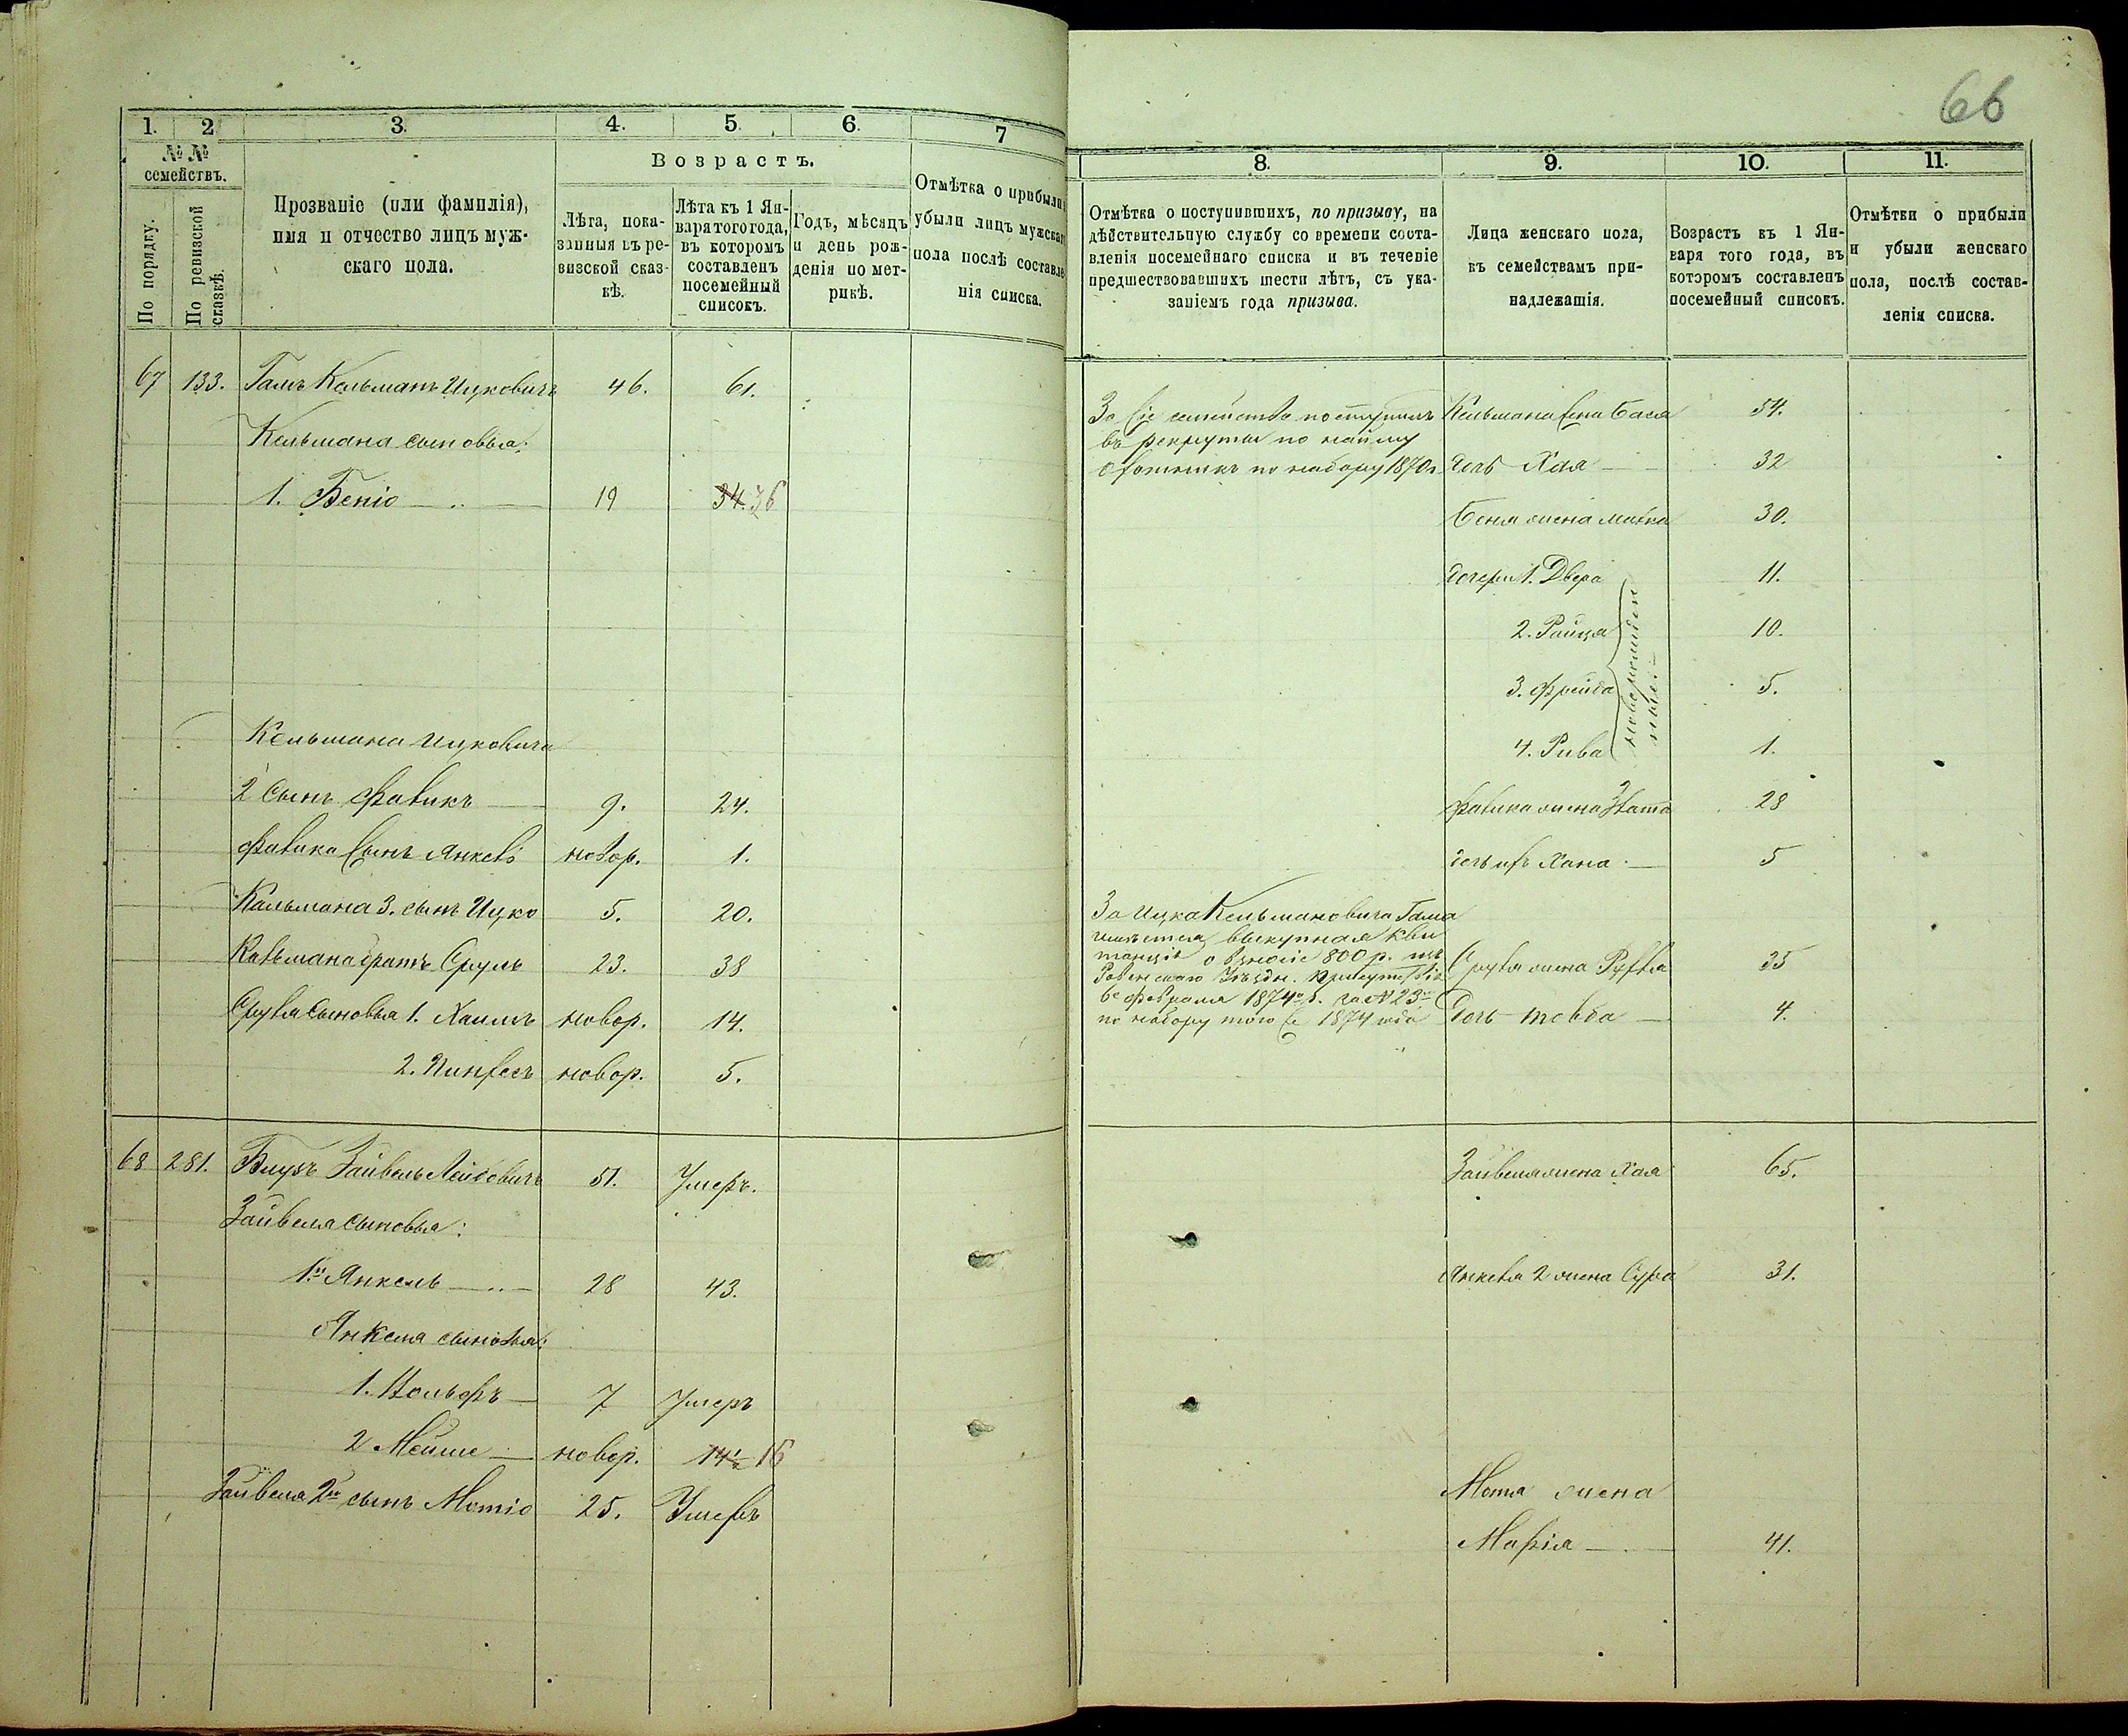 66
1. 2 3. 4. 5. 6. 7
№№ семействъ.
По порядку.
По ревизской сказкѣ.
Прозваніе (или фамилія),
имя и отчество лицъ муж-
скаго пола.
Возрастъ.
Лѣта, пока-
занныя въ ре-
визской сказ-
кѣ.
Лѣта къ 1 Ян-
варя того года,
въ которомъ
составленъ
посемейный
списокъ.
Годъ, мѣсяцъ
и день рож-
денія по мет-
рикѣ.
Отмѣтка о прибыли
убыли лицъ мужскаго
пола послѣ составле-
нія списка.
67 133. Гамъ Кельманъ Ицковичъ 46. 61.
Кельмана сыновья:
1. Беніо 19 34. 36
Кельмана Ицковича
2 сынъ Фавикъ 9. 24.
Фавика сынъ Янкель новор. 1.
Кельмана 3. сынъ Ицко 5. 20.
Кельмана братъ Сруль 23. 38
Сруля сыновья 1. Хаимъ новор. 14.
2. Пинхесъ новор. 5.
68 281. Зайвель Лейбовичъ 51. Умеръ.
Зайвеля сыновья:
1й Янкель 28 43.
Янкеля сыновья:
1. Вольфъ 7 Умеръ
2 Мейше новор. 14 16
Зайвеля 2й сынъ Мотіо 25. Умеръ
8. 9. 10. 11.
Отмѣтка о поступившихъ, по призыву, на
дѣйствительную службу со времени соста-
вленія посемейнаго списка и въ теченіе
предшествовавшихъ шести лѣтъ, съ ука-
заніемъ года призыва.
Лица женскаго пола,
къ семействамъ при-
надлежащія.
Возрастъ къ 1 Ян-
варя того года, въ
которомъ составленъ
посемейный списокъ.
Отмѣтки о прибыли
и убыли женскаго
пола, послѣ состав-
ленія списка.
За сіе семейство поступилъ
въ рекруты по найму
охотникъ по набору 1870 г.
Кельмана жена Бася 54.
дочь Хая 32
Беня жена Малка 30.
дочери 1. Двера 11.
2. Райца 10.
3. Фрейда 5.
4. Рива 1.
новорожден
ныя:
Фавика жена Злата 28
дочь ихъ Хана 5
За Ицка Кельмановича Гама
имѣется выкупная кви
танція о взносѣ 800 р. изъ
Ровенскаго Уѣздн. Присутствія
6 февраля 1874 г. за № 23
по набору того же 1874 года
Сруля жена Рухля 35
Дочь Товба 4.
Зайвеля жена Хая 65.
Янкеля 2 жена Сура 31.
Мотя жена
Марія 41.